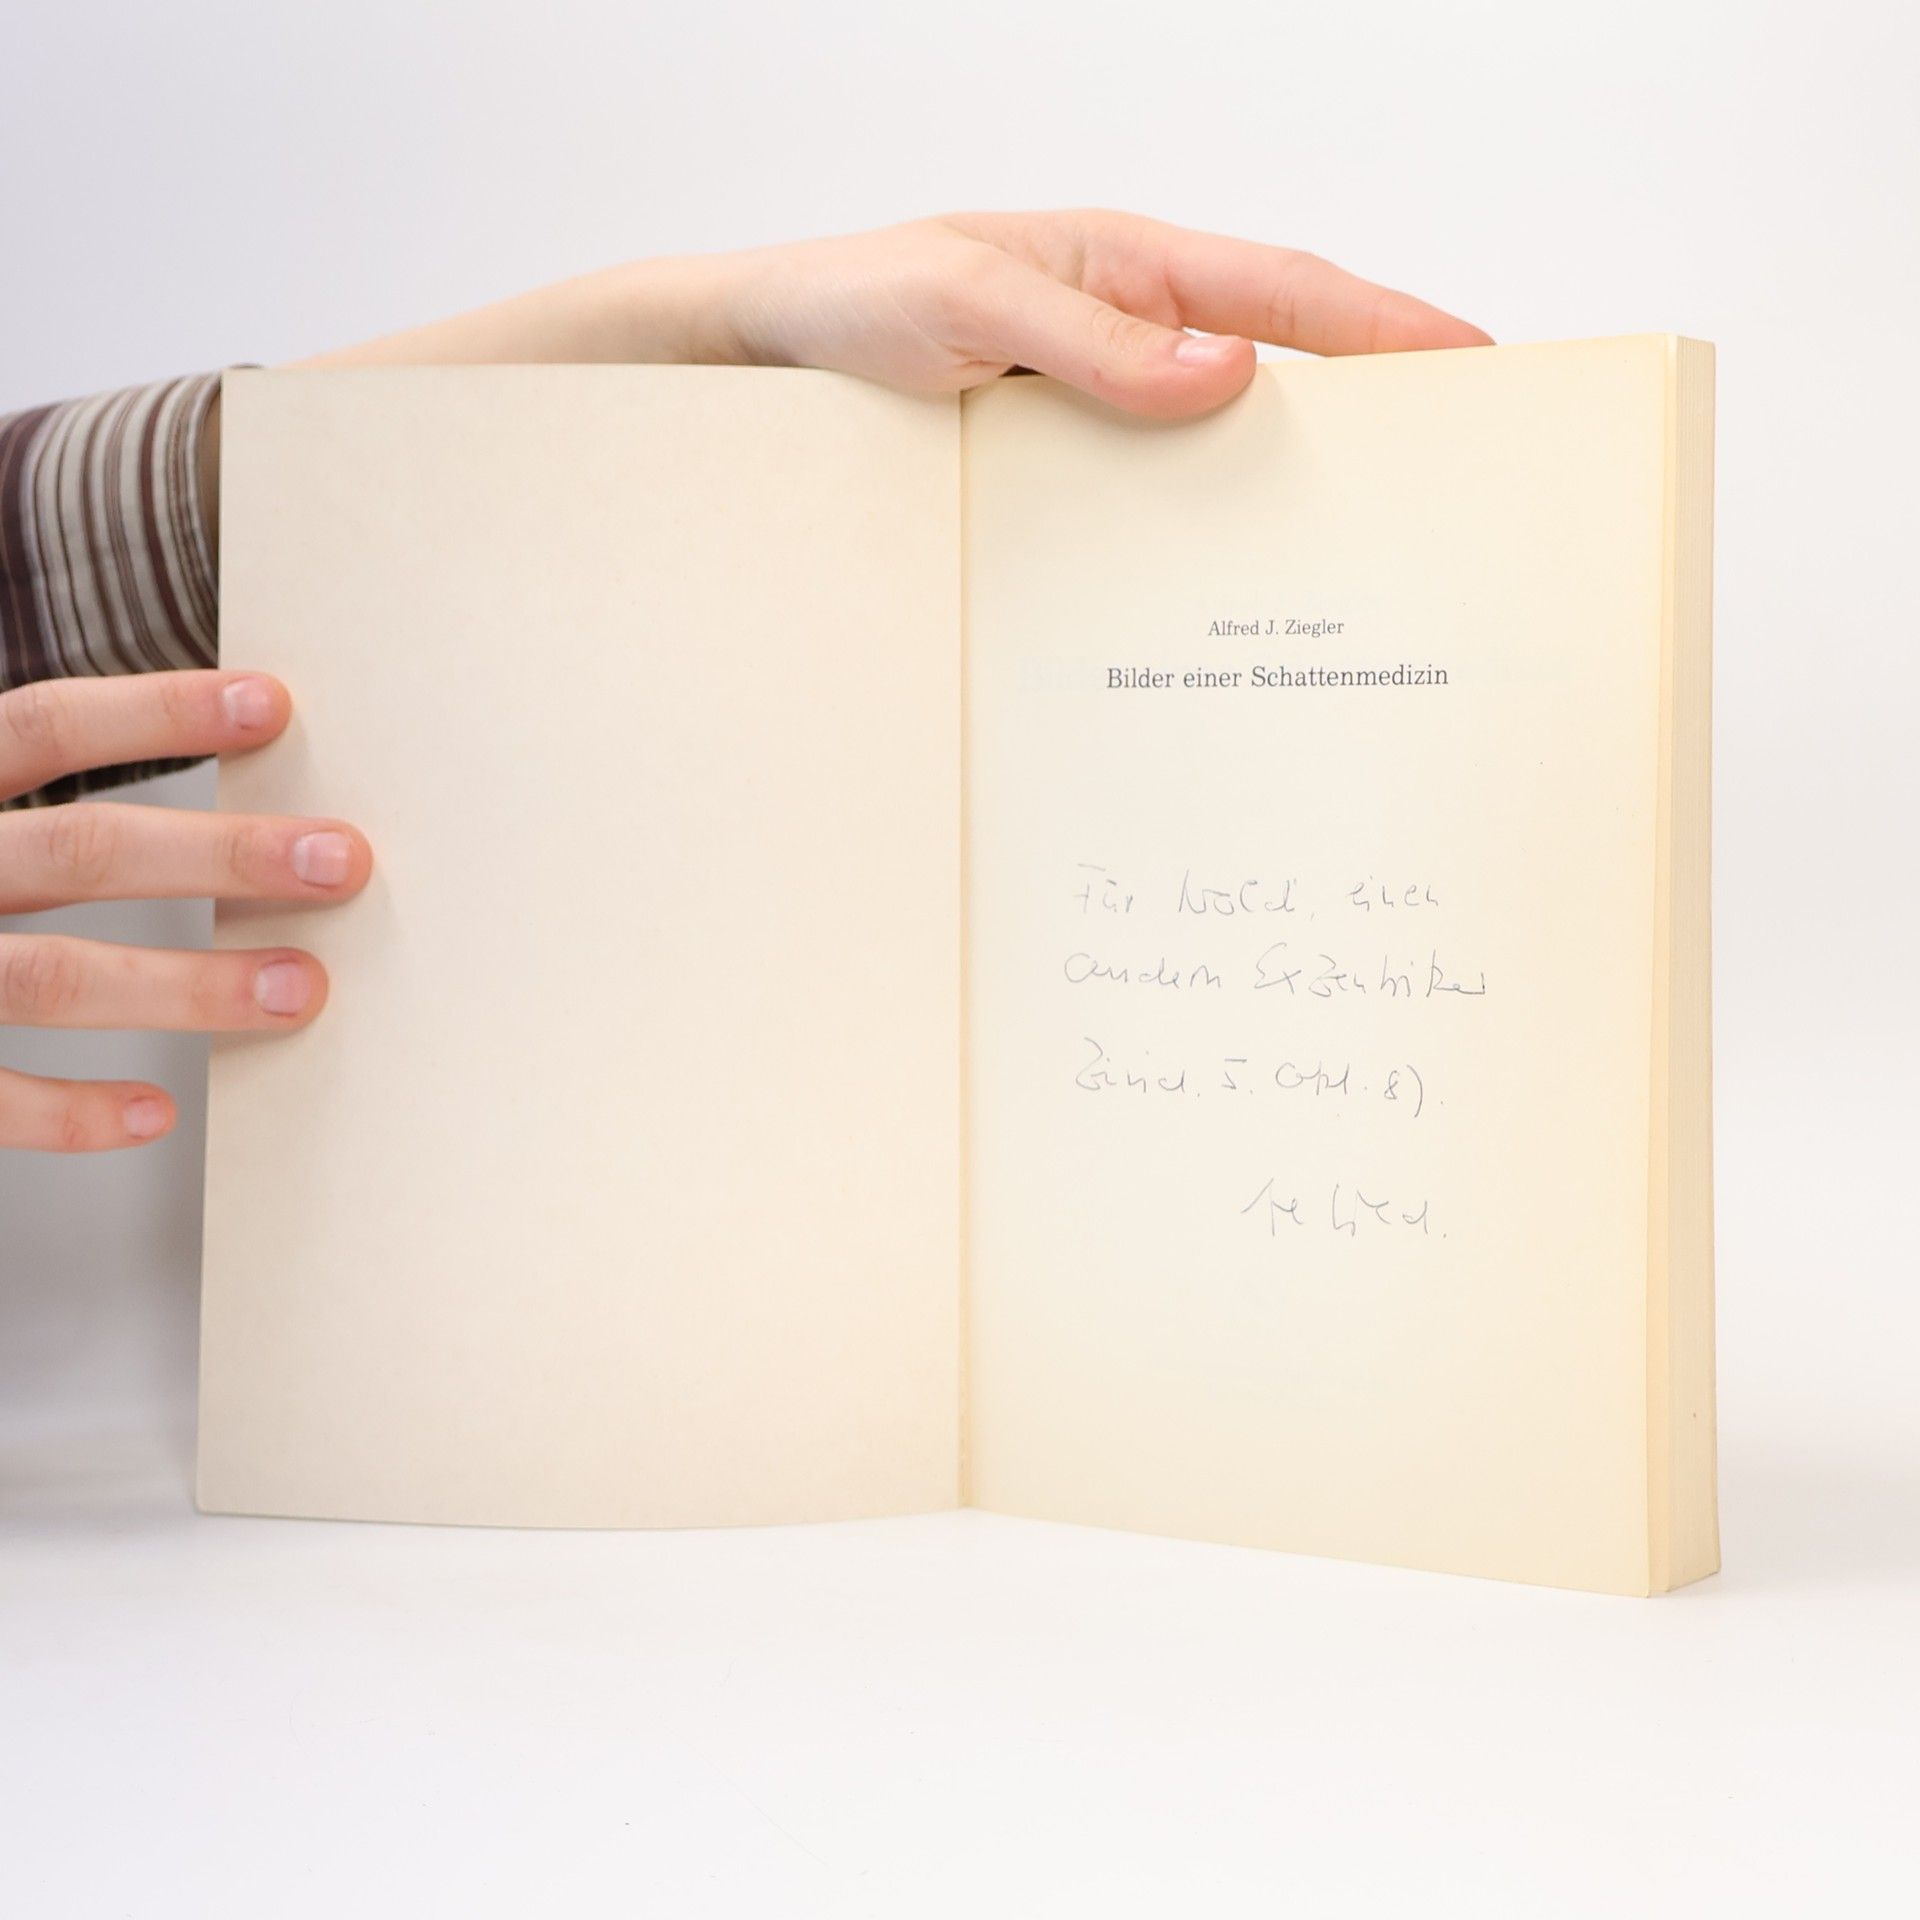 Alfred J. Ziegler
Bilder einer Schattenmedizin
Für Noldi, einen
andern Exzentriker
5. Okt. 87.